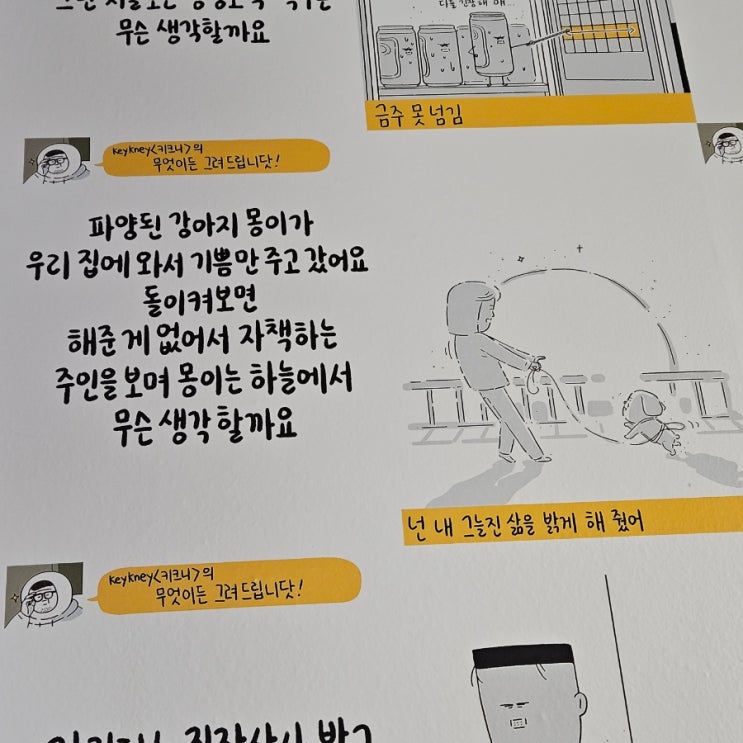 무슨 생각할까요
금주 못 넘김
keykney<키크니>의
무엇이든 그려드립니닷!
파양된 강아지 몽이가
우리 집에 와서 기쁨만 주고 갔어요
돌이켜보면
해준 게 없어서 자책하는
주인을 보며 몽이는 하늘에서
무슨 생각 할까요
넌 내 그늘진 삶을 밝게 해 줬어
keykney<키크니>의
무엇이든 그려드립니닷!